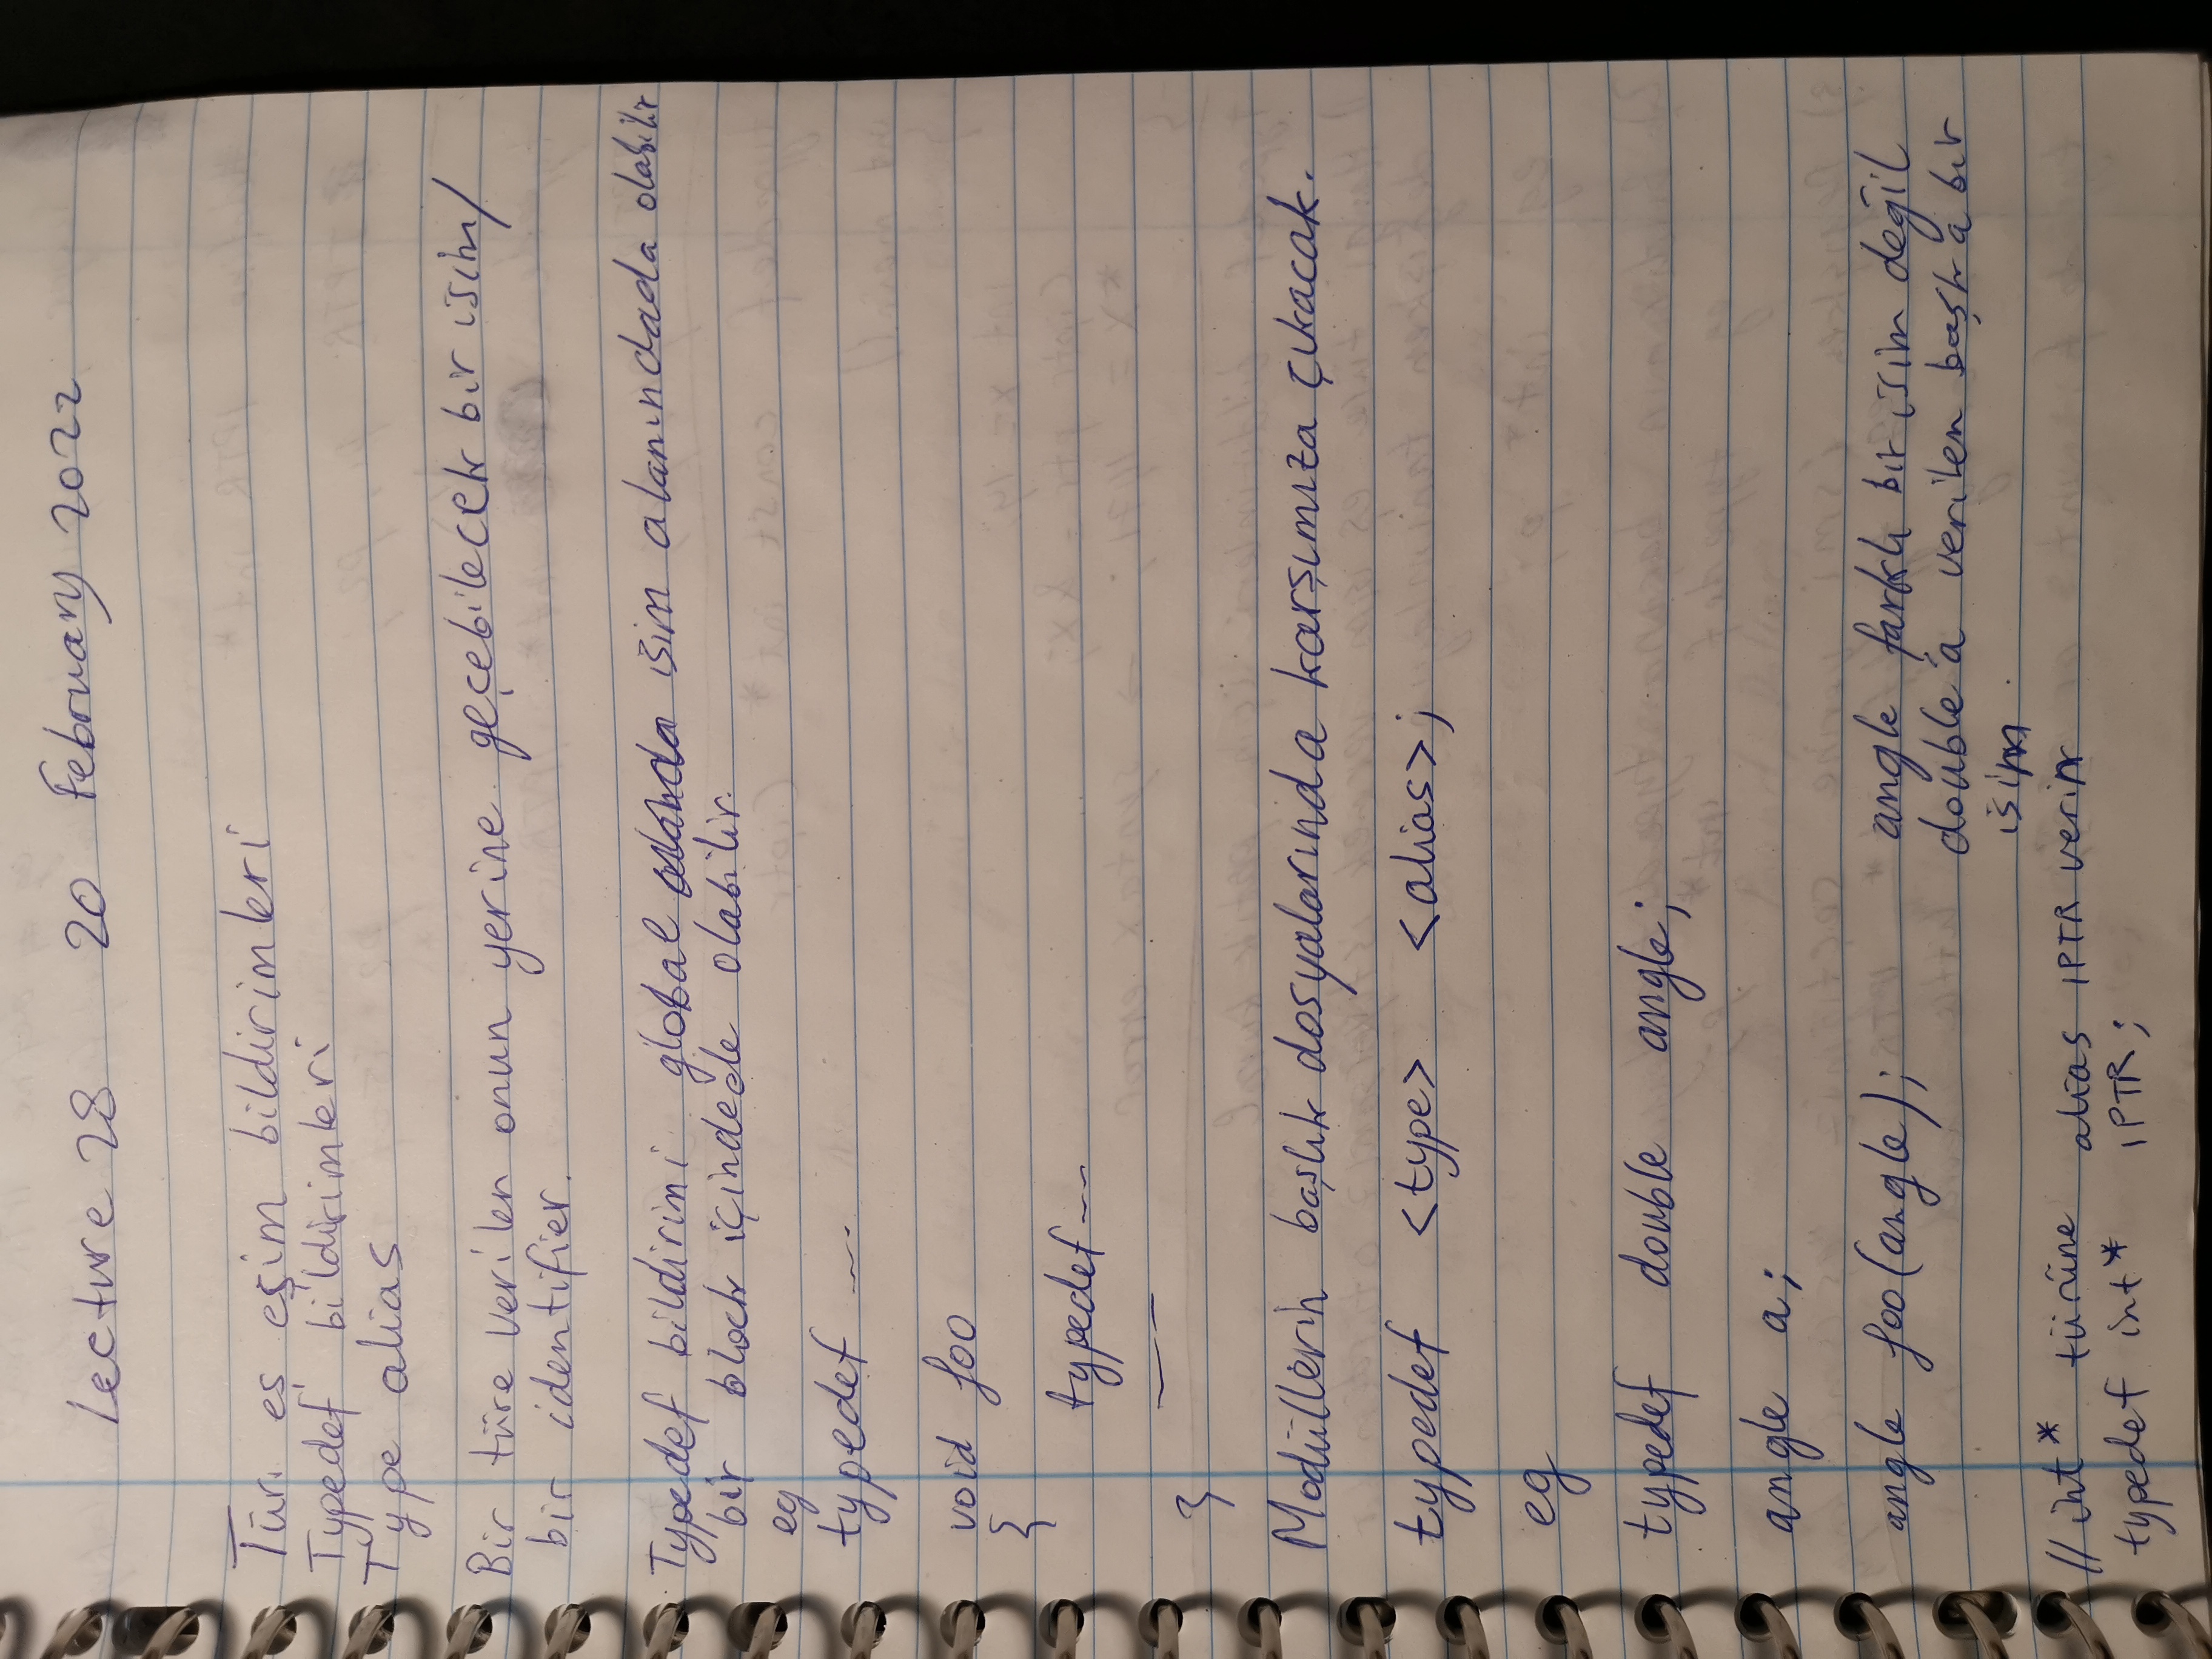 Lecture 28 20 February 2022
Tür eş eşim bildirimleri
Typedef bildirimleri
Type alias
Bir türe verilen onun yerine geçebilecek bir isim/
bir identifier.
Typedef bildirimi global alanda isim alanındada olabilir
bir block içindede olabilir.
eg
typedef ---
void foo
{
typedef ---
---
}
Modüllerin başlık dosyalarında karşımıza çıkacak.
typedef <type> <alias>;
eg
typedef double angle;
angle a;
angle foo(angle); angle farklı bir isim değil
double'a verilen başka bir
isim.
// int* türüne alias IPTR verin
typedef int* IPTR;